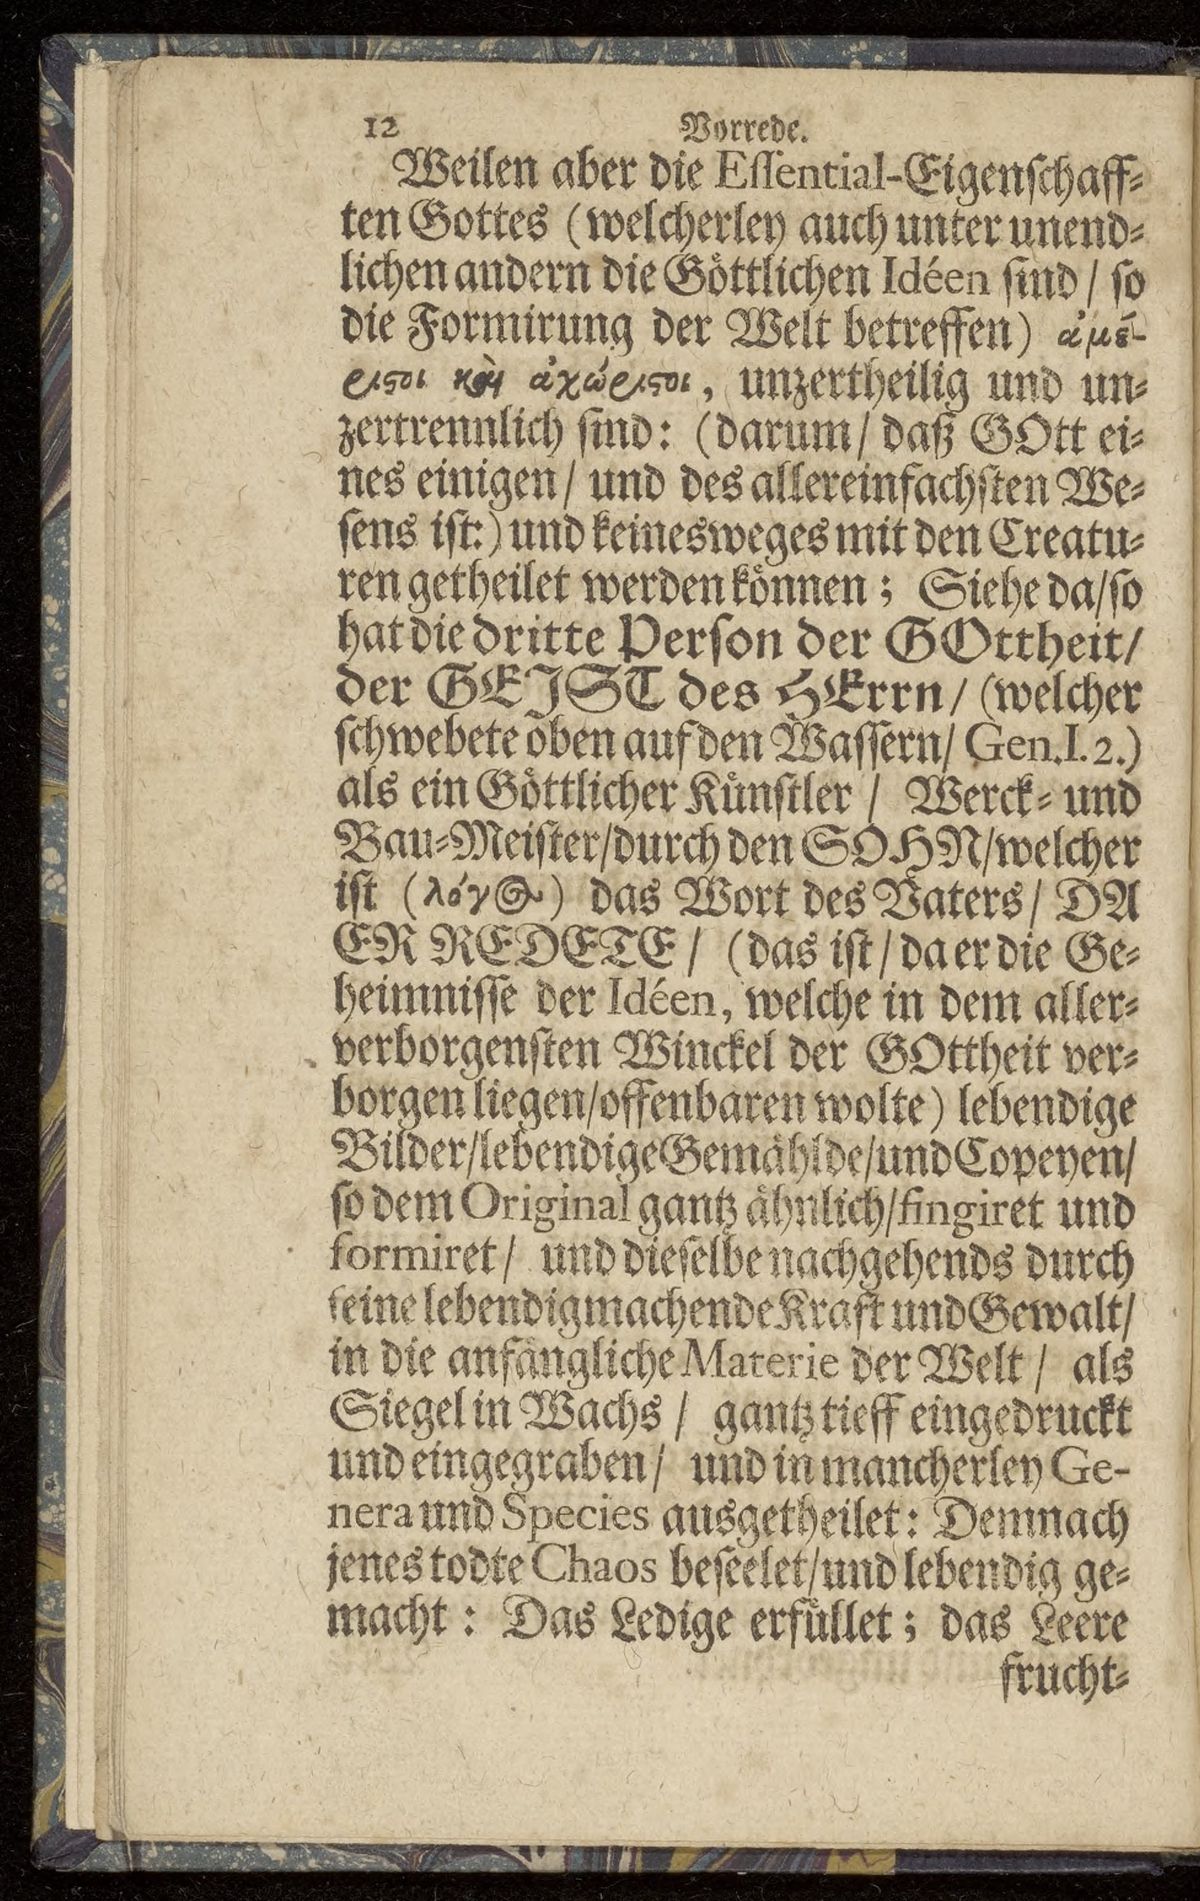 12 Vorrede.
Weilen aber die Eſſential-Eigenſchaff⸗
ten Gottes (welcherley auch unter unend⸗
lichen andern die Goͤttlichen Idéen ſind / ſo
die Formirung der Welt betreffen) ἀμέ-
ριϛοι καὶ ἀχώριϛοι, unzertheilig und un⸗
zertrennlich ſind: (darum / daß GOtt ei⸗
nes einigen / und des allereinfachſten We⸗
ſens iſt:) und keinesweges mit den Creatu⸗
ren getheilet werden koͤnnen; Siehe da/ſo
hat die dritte Perſon der GOttheit/
der GEJST des HErrn / (welcher
ſchwebete oben auf den Waſſern/ Gen.I.2.)
als ein Goͤttlicher Kuͤnſtler / Werck⸗ und
Bau⸗Meiſter/durch den SOHN/welcher
iſt (λόγος) das Wort des Vaters / DA
ER REDETE / (das iſt / da er die Ge⸗
heimniſſe der Idéen, welche in dem aller⸗
verborgenſten Winckel der GOttheit ver⸗
borgen liegen/offenbaren wolte) lebendige
Bilder/lebendige Gemaͤhlde/und Copeyen/
ſo dem Original gantz aͤhnlich/fingiret und
formiret / und dieſelbe nachgehends durch
ſeine lebendigmachende Kraft und Gewalt/
in die anfaͤngliche Materie der Welt / als
Siegel in Wachs / gantz tieff eingedruckt
und eingegraben / und in mancherley Ge-
nera und Species ausgetheilet: Demnach
jenes todte Chaos beſeelet/und lebendig ge⸗
macht: Das Ledige erfuͤllet; das Leere
frucht⸗